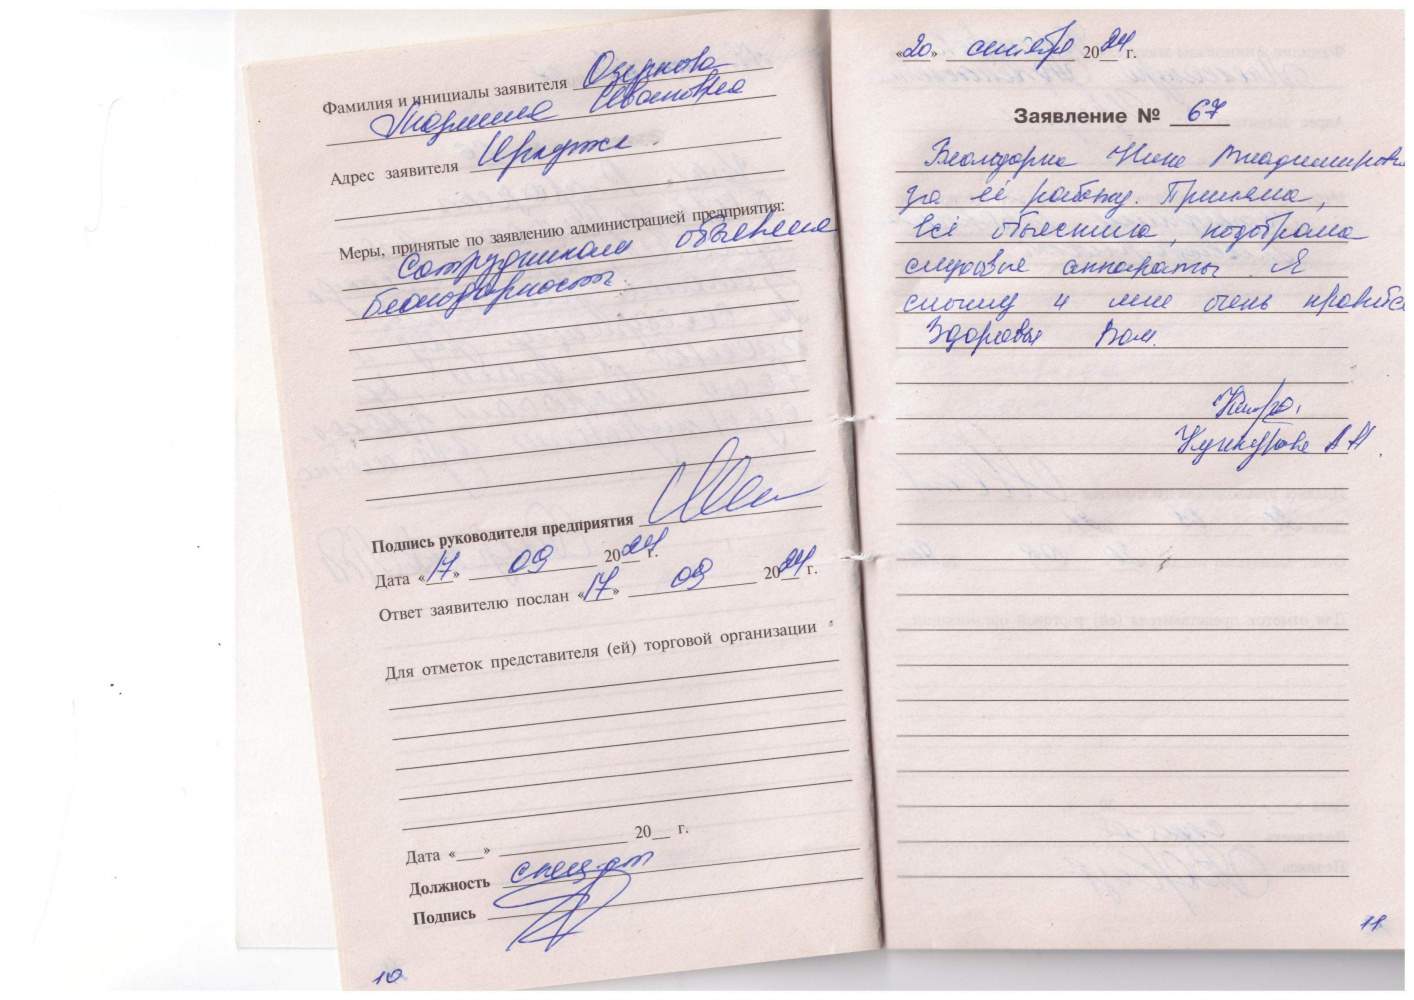 Фамилия и инициалы заявителя Озернова
Людмила Ивановна
Адрес заявителя
Меры, принятые по заявлению администрацией предприятия:
Сотрудникам объявлена
благодарность.
Подпись руководителя предприятия
Дата «17» 09 2024 г.
Ответ заявителю послан «17» 09 2024 г.
Для отметок представителя (ей) торговой организации
Дата «___» ___ 20__ г.
Должность специалист
Подпись
10
«20» сентября 2024 г.
Заявление № 67
Благодарна Нине Владимировне
за её работу. Приняла,
всё объяснила, подобрала
слуховые аппараты. Я
слышу и мне очень нравится
Здоровья Вам.
11